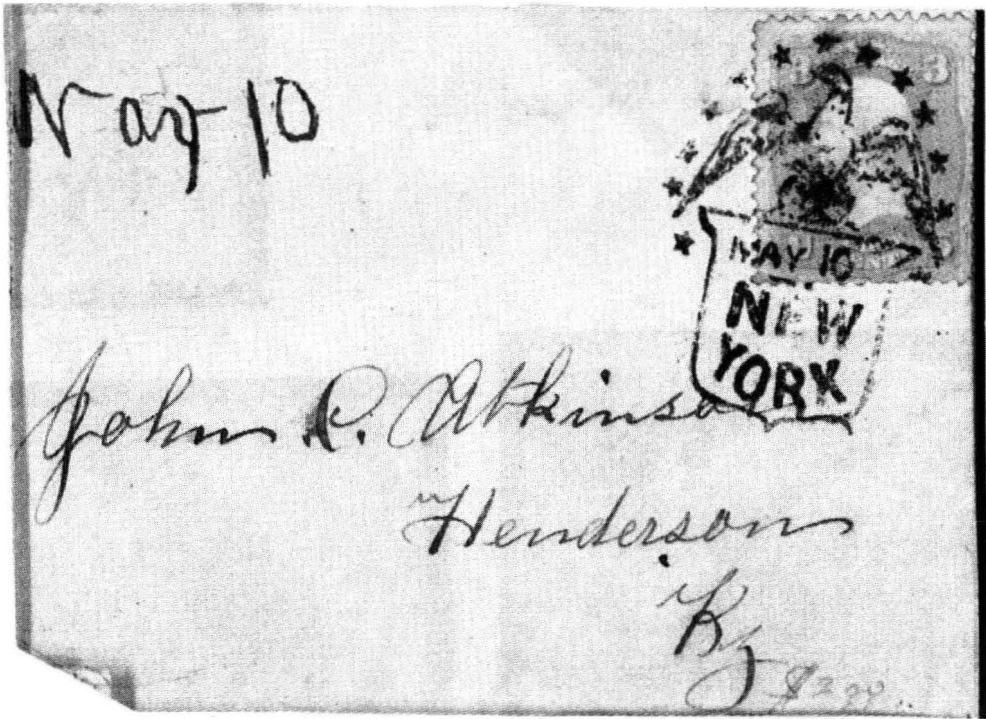 May 10
3 3
MAY 10
NEW
YORK
John C. Atkinson
Henderson
Ky